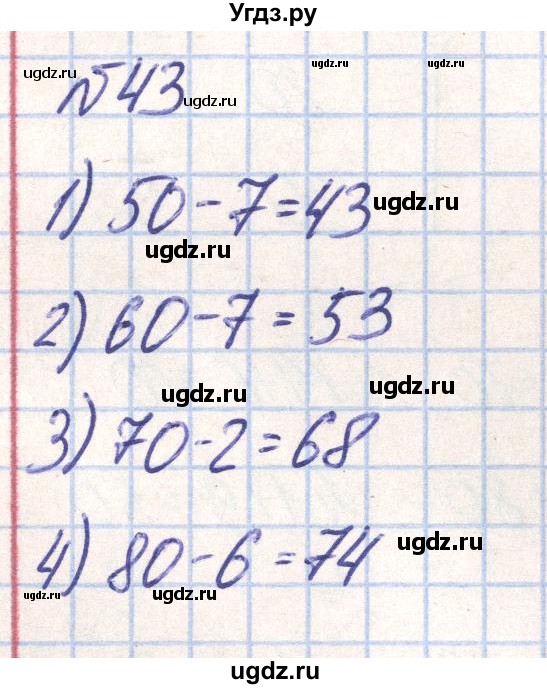 Угдз.ру
ugdz.ru ugdz.ru ugdz.ru
№43
ugdz.ru
1) 50-7=43
ugdz.ru
ugdz.ru
2) 60-7=53
ugdz.ru
3) 70-2=68
4) 80-6=74
ugdz.ru
ugdz.ru ugdz.ru ugdz.ru
ugdz.ru